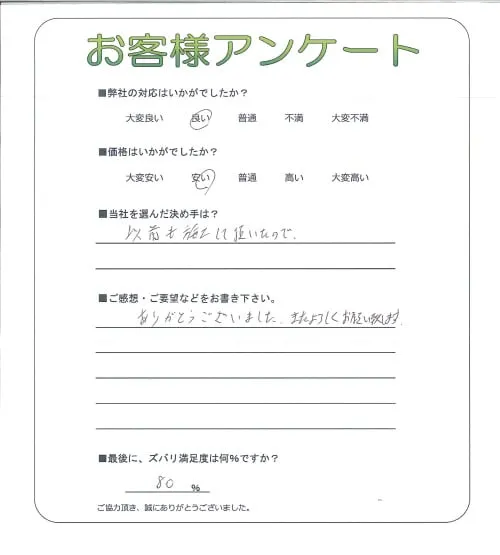 お客様アンケート
■弊社の対応はいかがでしたか？
大変良い 良い 普通 不満 大変不満
■価格はいかがでしたか？
大変安い 安い 普通 高い 大変高い
■当社を選んだ決め手は？
以前も施工して頂いたので、
■ご感想・ご要望などをお書き下さい。
ありがとうございました、またよろしくお願い致します
■最後に、ズバリ満足度は何%ですか？
80 %
ご協力頂き、誠にありがとうございました。